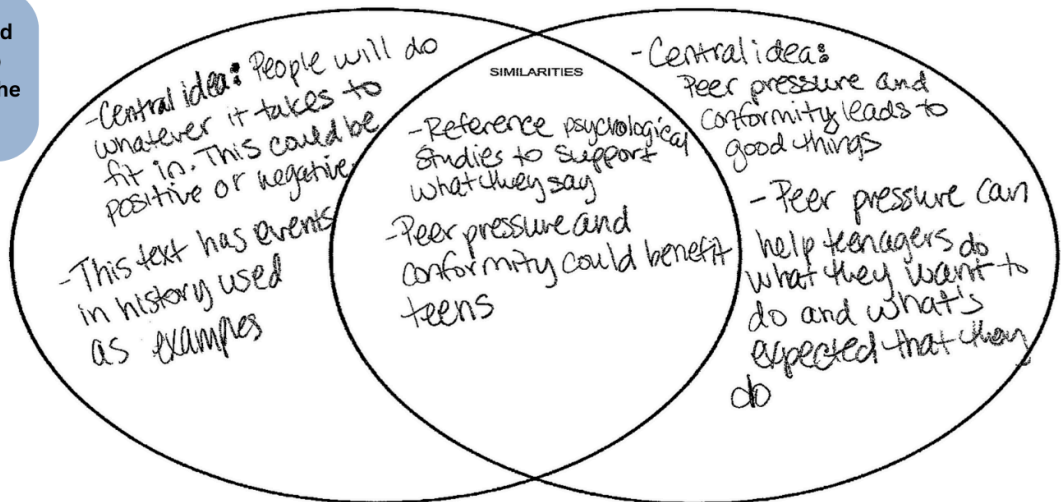 d
he
-Central idea: People will do
whatever it takes to
fit in. This could be
positive or negative.
-This text has events
in history used
as examples
SIMILARITIES
-Reference psychological
studies to support
what they say
-Peer pressure and
conformity could benefit
teens
-Central idea:
Peer pressure and
conformity leads to
good things
-Peer pressure can
help teenagers do
what they want to
do and what's
expected that they
do